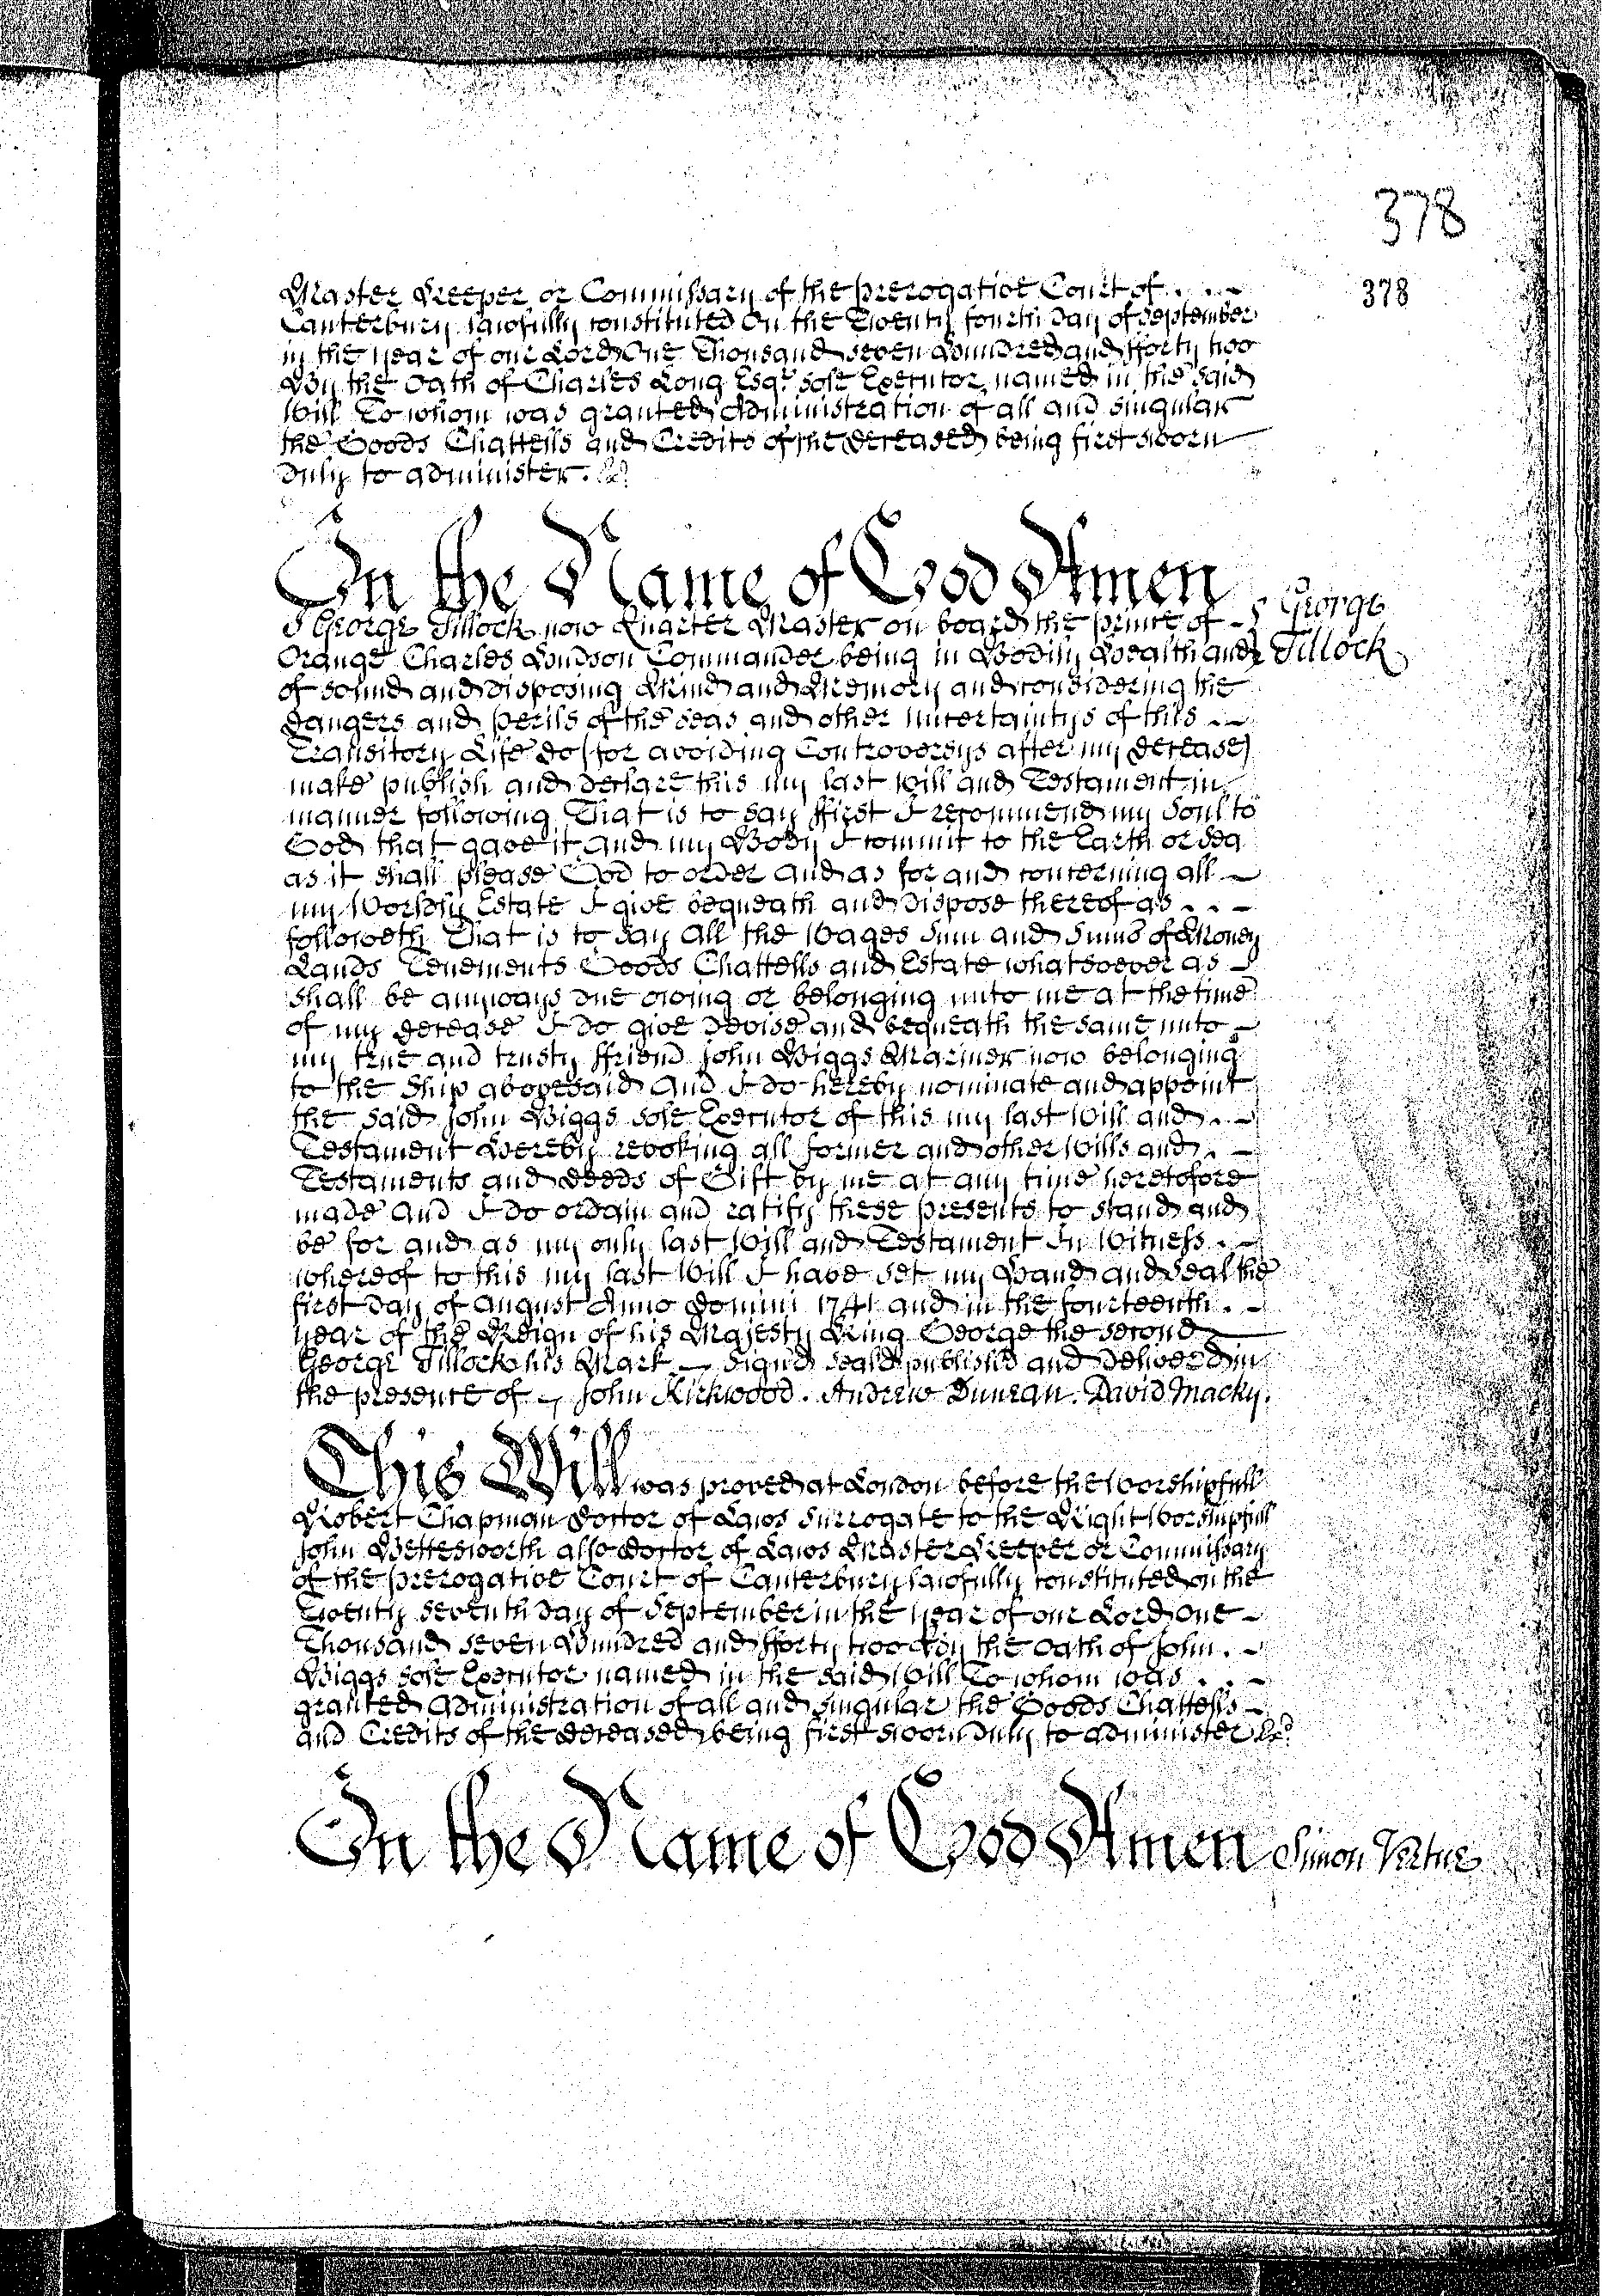 378
378
Master Keeper or Commissary of the prerogative Court of
Canterbury lawfully constituted On the Twenty fourth Day of September
in the year of our Lord One Thousand seven Hundred and fforty two
By the Oath of Charles Long Esqr. sole Executor named in the said
Will To whom was granted Administration of all and singular
the Goods Chattells and Credits of the deceased being first sworn
duly to administer. &c
In the Name of God Amen
I George Tillock now Quarter Master on board the prince of
George
Orange Charles Hudson Commander being in Bodily Health and
Tillock
of sound and disposing Mind and Memory and considering the
dangers and perils of the seas and other uncertaintys of this
Transitory Life do (for avoiding Controversys after my decease)
make publish and declare this my last Will and Testament in
manner following That is to say ffirst I recommend my Soul to
God that gave it and my Body I commit to the Earth or Sea
as it shall please God to order and as for and concerning all
my Worldly Estate I give bequeath and dispose thereof as
followeth That is to say All the Wages Sum and Sums of Money
Lands Tenements Goods Chattells and Estate whatsoever as
shall be anyways due owing or belonging unto me at the time
of my decease I do give devise and bequeath the same unto
my true and trusty ffriend John Biggs Mariner now belonging
to the Ship abovesaid And I do hereby nominate and appoint
the said John Biggs sole Executor of this my last Will and
Testament Hereby revoking all former and other Wills and
Testaments and deeds of Gift by me at any time heretofore
made And I do ordain and ratify these presents to stand and
be for and as my only last Will and Testament In Witness
whereof to this my last Will I have set my Hand and Seal the
first Day of August Anno Domini 1741 and in the fourteenth
year of the Reign of his Majesty King George the Second
George Tillock his Mark Signed Seald publish'd and deliverd in
the presence of John Kirkwood. Andrew Duncan. David Macky.
This Will was proved at London before the Worshipfull
Robert Chapman Doctor of Laws Surrogate to the Right Worshipfull
John Bettesworth also Doctor of Laws Master Keeper or Commissary
of the prerogative Court of Canterbury lawfully constituted on the
Twenty seventh Day of September in the year of our Lord One
Thousand seven Hundred and fforty two By the Oath of John
Biggs sole Executor named in the said Will To whom was
granted Administration of all and singular the Goods Chattells
and Credits of the deceased being first sworn duly to administer &c.
In the Name of God Amen
Simon Vertue